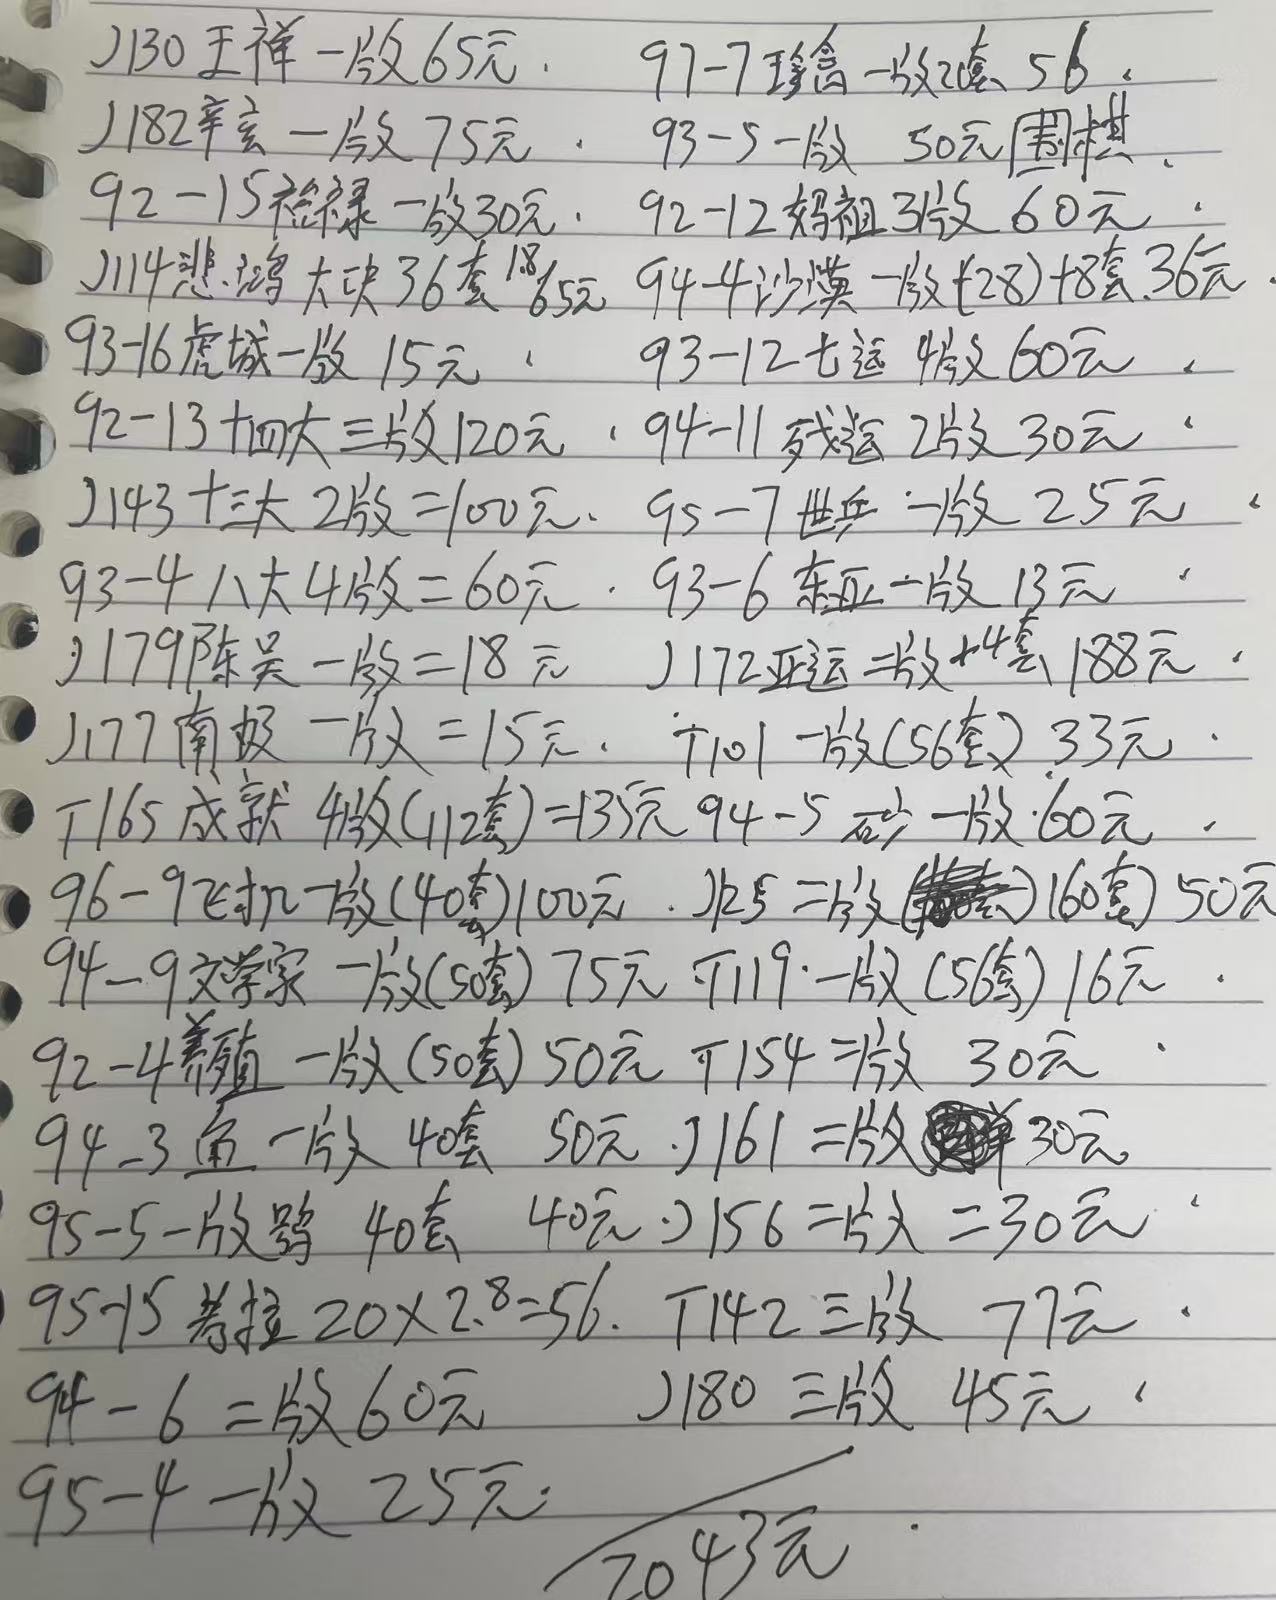 J130王祥一版65元.
97-7珍禽一版20套 56.
J182辛亥一版75元.
93-5一版 50元围棋.
92-15福禄一版30元.
92-12妈祖3版60元.
J114悲鸿大块36套1.8/65元
94-4沙漠一版(28)+8套.36元.
93-16虎城一版15元.
93-12七运4版60元.
92-13十四大三版120元.
94-11残运2版30元.
J143十三大2版=100元.
95-7世乒一版25元.
93-4八大4版=60元.
93-6东亚一版13元.
J179陈吴一版=18元
J172亚运二版+4套188元.
J177南极一版=15元.
T101一版(56套)33元.
T165成就4版(112套)=135元
94-5砂一版.60元.
96-9飞机一版(40套)100元.
J125二版160套)50元
94-9文学家一版(50套)75元
T119.一版(56套)16元.
92-4养殖一版(50套)50元
T154二版 30元.
94-3鱼一版40套 50元.
J161二版 30元
95-5一版鹤 40套 40元.
J156二版=30元.
95-15普拉20×2.8=56.
T142三版 77元.
94-6二版60元
J180三版 45元.
95-4一版25元.
2043元.